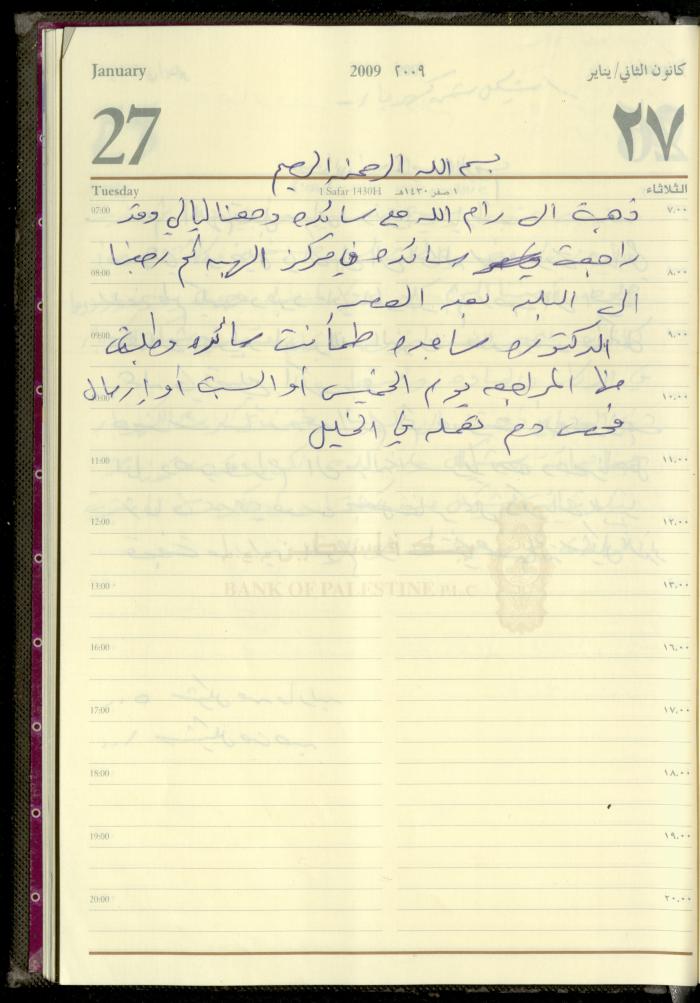 January 2009 ٢٠٠٩ كانون الثاني/يناير
27 ٢٧
بسم الله الرحمن الرحيم
Tuesday 1 Safar 1430H ١ صفر ١٤٣٠هـ الثلاثاء
07:00 ذهبت الى رام الله مع سائده ومعنا ليالي وقد ٧،٠٠
راجعت سائده في مركز الهبه ثم رجعنا
08:00 ٨،٠٠
الى البلد بعد العصر
09:00 الدكتوره ساجده طمأنت سائده وطلبت ٩،٠٠
منا المراجعه يوم الخميس أو السبت أو إرسال
١٠،٠٠
فحص دم نعمله في الخليل
11:00 ١١،٠٠
12:00 ١٢،٠٠
13:00 ١٣،٠٠
BANK OF PALESTINE PLC
16:00 ١٦،٠٠
17:00 ١٧،٠٠
18:00 ١٨،٠٠
19:00 ١٩،٠٠
20:00 ٢٠،٠٠